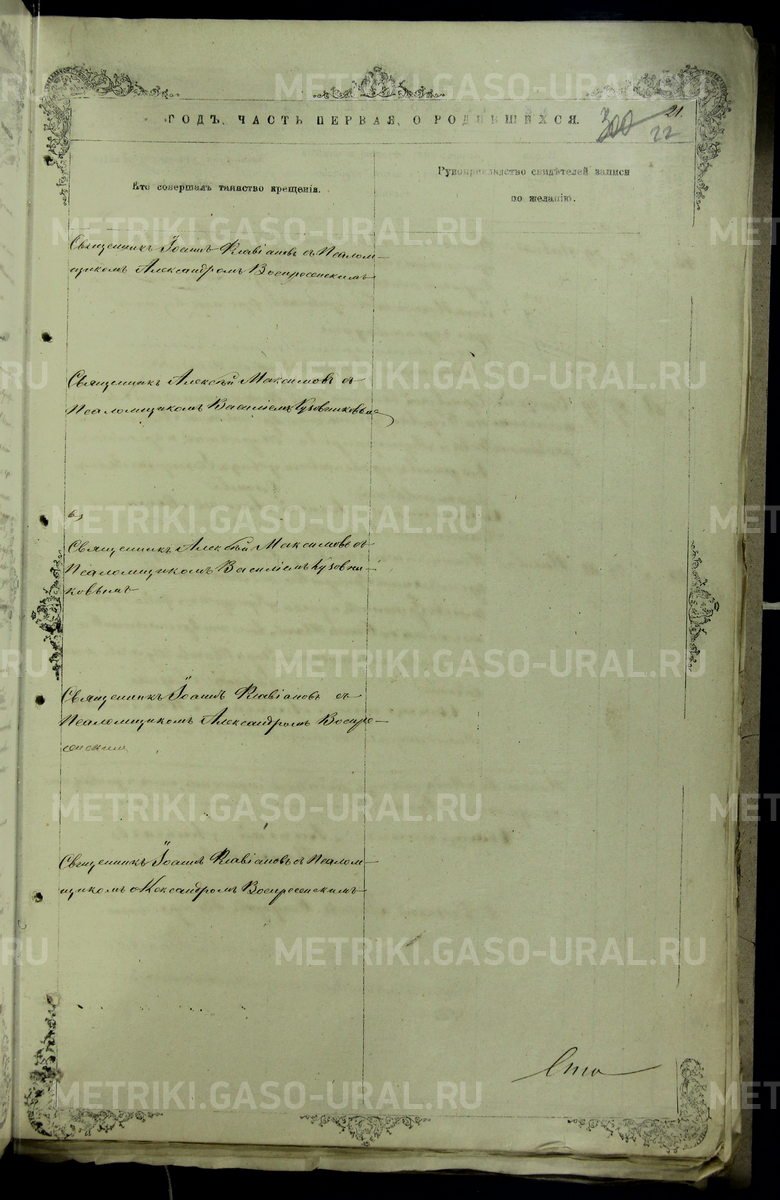 ГОДЪ, ЧАСТЬ ПЕРВАЯ, О РОДИВШИХСЯ.
300
21.
22
Кто совершалъ таинство крещенія.
Рукоприкладство свидѣтелей записи
по желанію.
Священникъ Іоаннъ Флавіановъ съ Псалом-
щикомъ Александромъ Воскресенскимъ
Священникъ Алексѣй Максимовъ съ
Псаломщикомъ Василіемъ Кузовниковымъ
Священникъ Алексѣй Максимовъ съ
Псаломщикомъ Василіемъ Кузовни-
ковымъ
Священникъ Іоаннъ Флавіановъ съ
Псаломщикомъ Александромъ Воскре-
сенскимъ
Священникъ Іоаннъ Флавіановъ съ Псалом-
щикомъ Александромъ Воскресенскимъ
Сто
METRIKI.GASO-URAL.RU